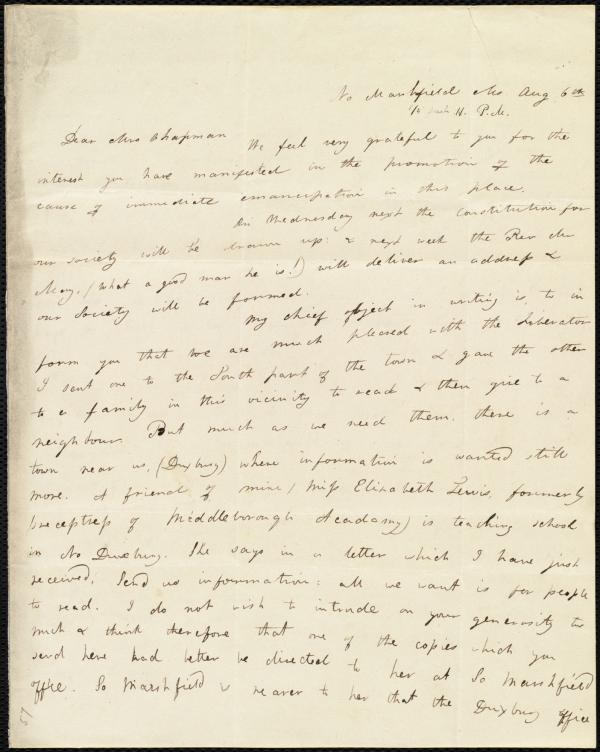 No Marshfield Ms. Aug 6th
11. P.M.
Dear Mrs Chapman
We feel very grateful to you for the
interest you have manifested in the promotion of the
cause of immediate emancipation in this place.
On Wednesday next the constitution for
our society will be drawn up: & next week the Rev Mr
May, (what a good man he is!) will deliver an address &
our Society will be formed.
My chief object in writing is, to in
form you that we are much pleased with the Liberator
I sent one to the South part of the town & gave the other
to a family in this vicinity to read & then give to a
neighbour. But much as we need them, there is a
town near us, (Duxbury) where information is wanted still
more. A friend of mine (Miss Elizabeth Lewis, formerly
preceptress of Middleborough Academy) is teaching school
in No Duxbury. She says in a letter which I have just
received, Send us information: all we want is for people
to read. I do not wish to intrude on your generosity too
much & think therefore that one of the copies which you
send here had better be directed to her at So Marshfield
office. So Marshfield is nearer to her that the Duxbury office
57